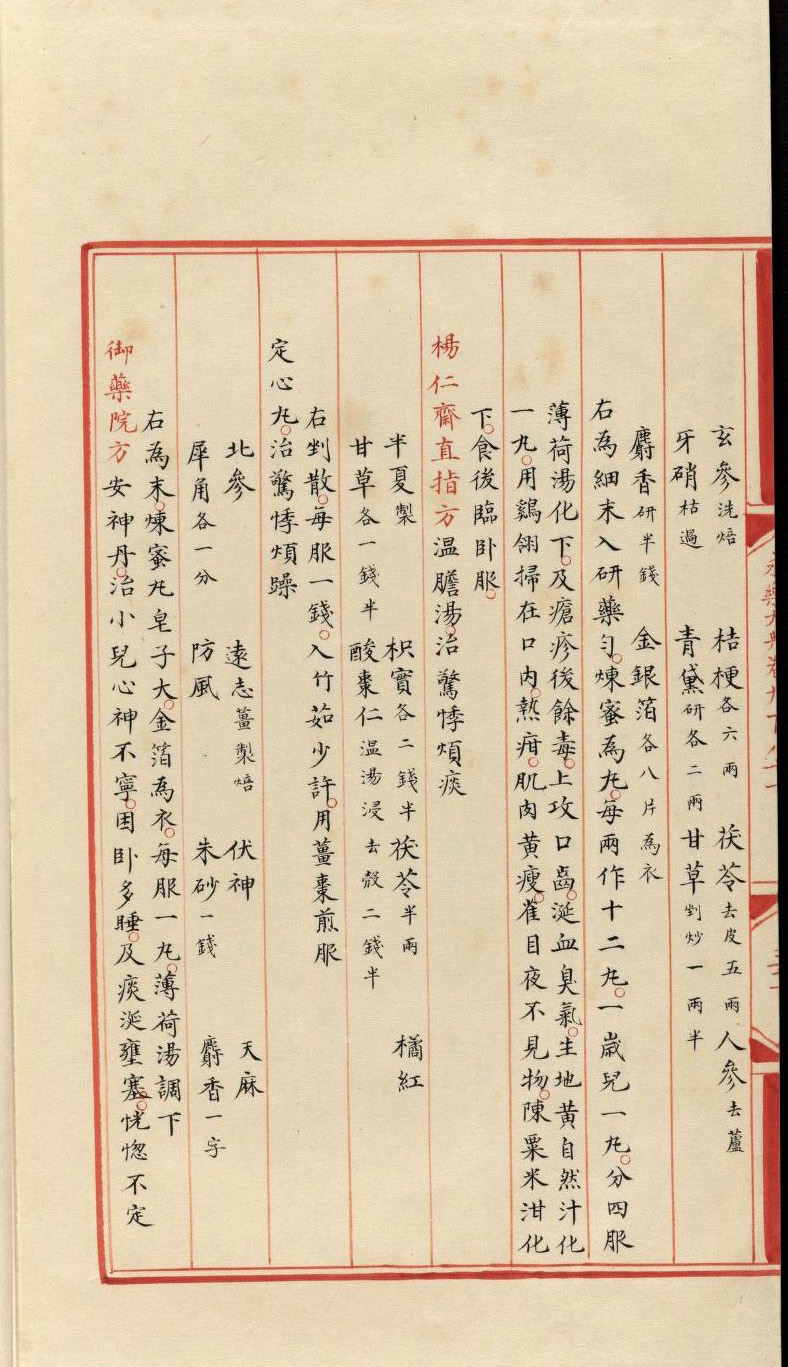 玄參洗焙 桔梗各六兩 茯苓去皮五兩 人參去蘆
牙硝枯過 青黛研各二兩 甘草剉炒一兩半
麝香研半錢 金銀箔各八片為衣
右為細末入研藥勻煉蜜為丸每兩作十二丸一歲兒一丸分四服
薄荷湯化下及瘡疹後餘毒上攻口齒涎血臭氣生地黃自然汁化
一丸用鷄翎掃在口內熱疳肌肉黃瘦雀目夜不見物陳粟米泔化
下食後臨卧服
楊仁齋直指方温膽湯治驚悸煩痰
半夏製 枳實各二錢半 茯苓半兩 橘紅
甘草各一錢半 酸棗仁温湯浸去殼二錢半
右剉散每服一錢入竹茹少許用薑棗煎服
定心丸治驚悸煩躁
北參 遠志薑製焙 伏神 天麻
犀角各一分 防風 朱砂一錢 麝香一字
右為末煉蜜丸皂子大金箔為衣每服一丸薄荷湯調下
御藥院方安神丹治小兒心神不寧困卧多睡及痰涎壅塞恍惚不定